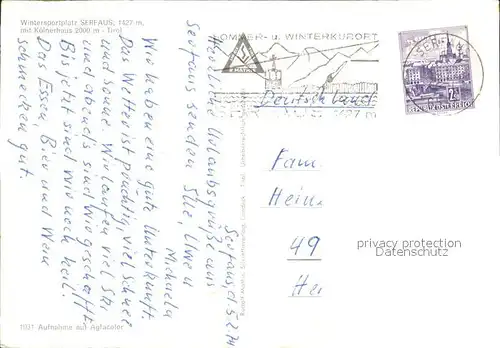 Wintersportplatz SERFAUS, 1427 m,
mit Kölnerhaus 2000 m - Tirol
Serfaus, d. 5.2.74
Herzliche Urlaubsgrüße aus
Serfaus senden Elle, Uwe u
Michaela
Wir haben eine gute Unterkunft.
Das Wetter ist prächtig, viel Schnee
und Sonne. Wir laufen viel Ski
und abends sind wir geschafft.
Bis jetzt sind wir noch heil.
Das Essen, Bier und Wein
schmecken gut.
SOMMER- u. WINTERKURORT
SERFAUS
1427 m
Deutschland
REPUBLIK ÖSTERREICH
Fam.
Hein
49
He
privacy protection
Datenschutz
1921 Aufnahme auf Agfacolor